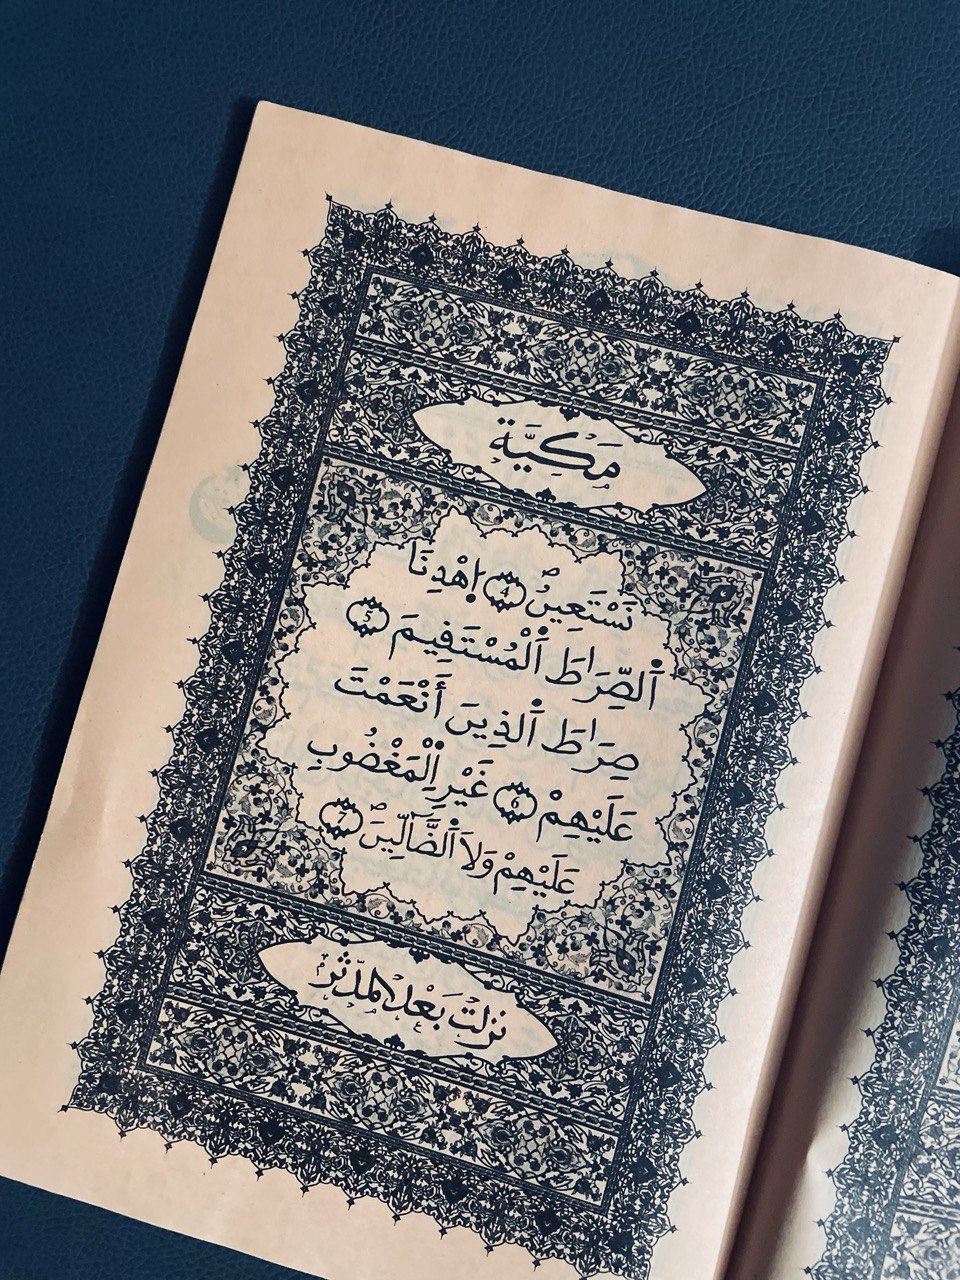 مَكِّيَّة
نَسْتَعِينُ 4 اِ۪هْدِنَا
اَ۬لصِّرَٰطَ اَ۬لْمُسْتَفِيمَ 5
صِرَٰطَ اَ۬لذِينَ أَنْعَمْتَ
عَلَيْهِمْ 6 غَيْرِ اِ۬لْمَغْضُوبِ
عَلَيْهِمْ وَلَا اَ۬لضَّآلِّينَ 7
نزلت بَعْدَ المدّثر